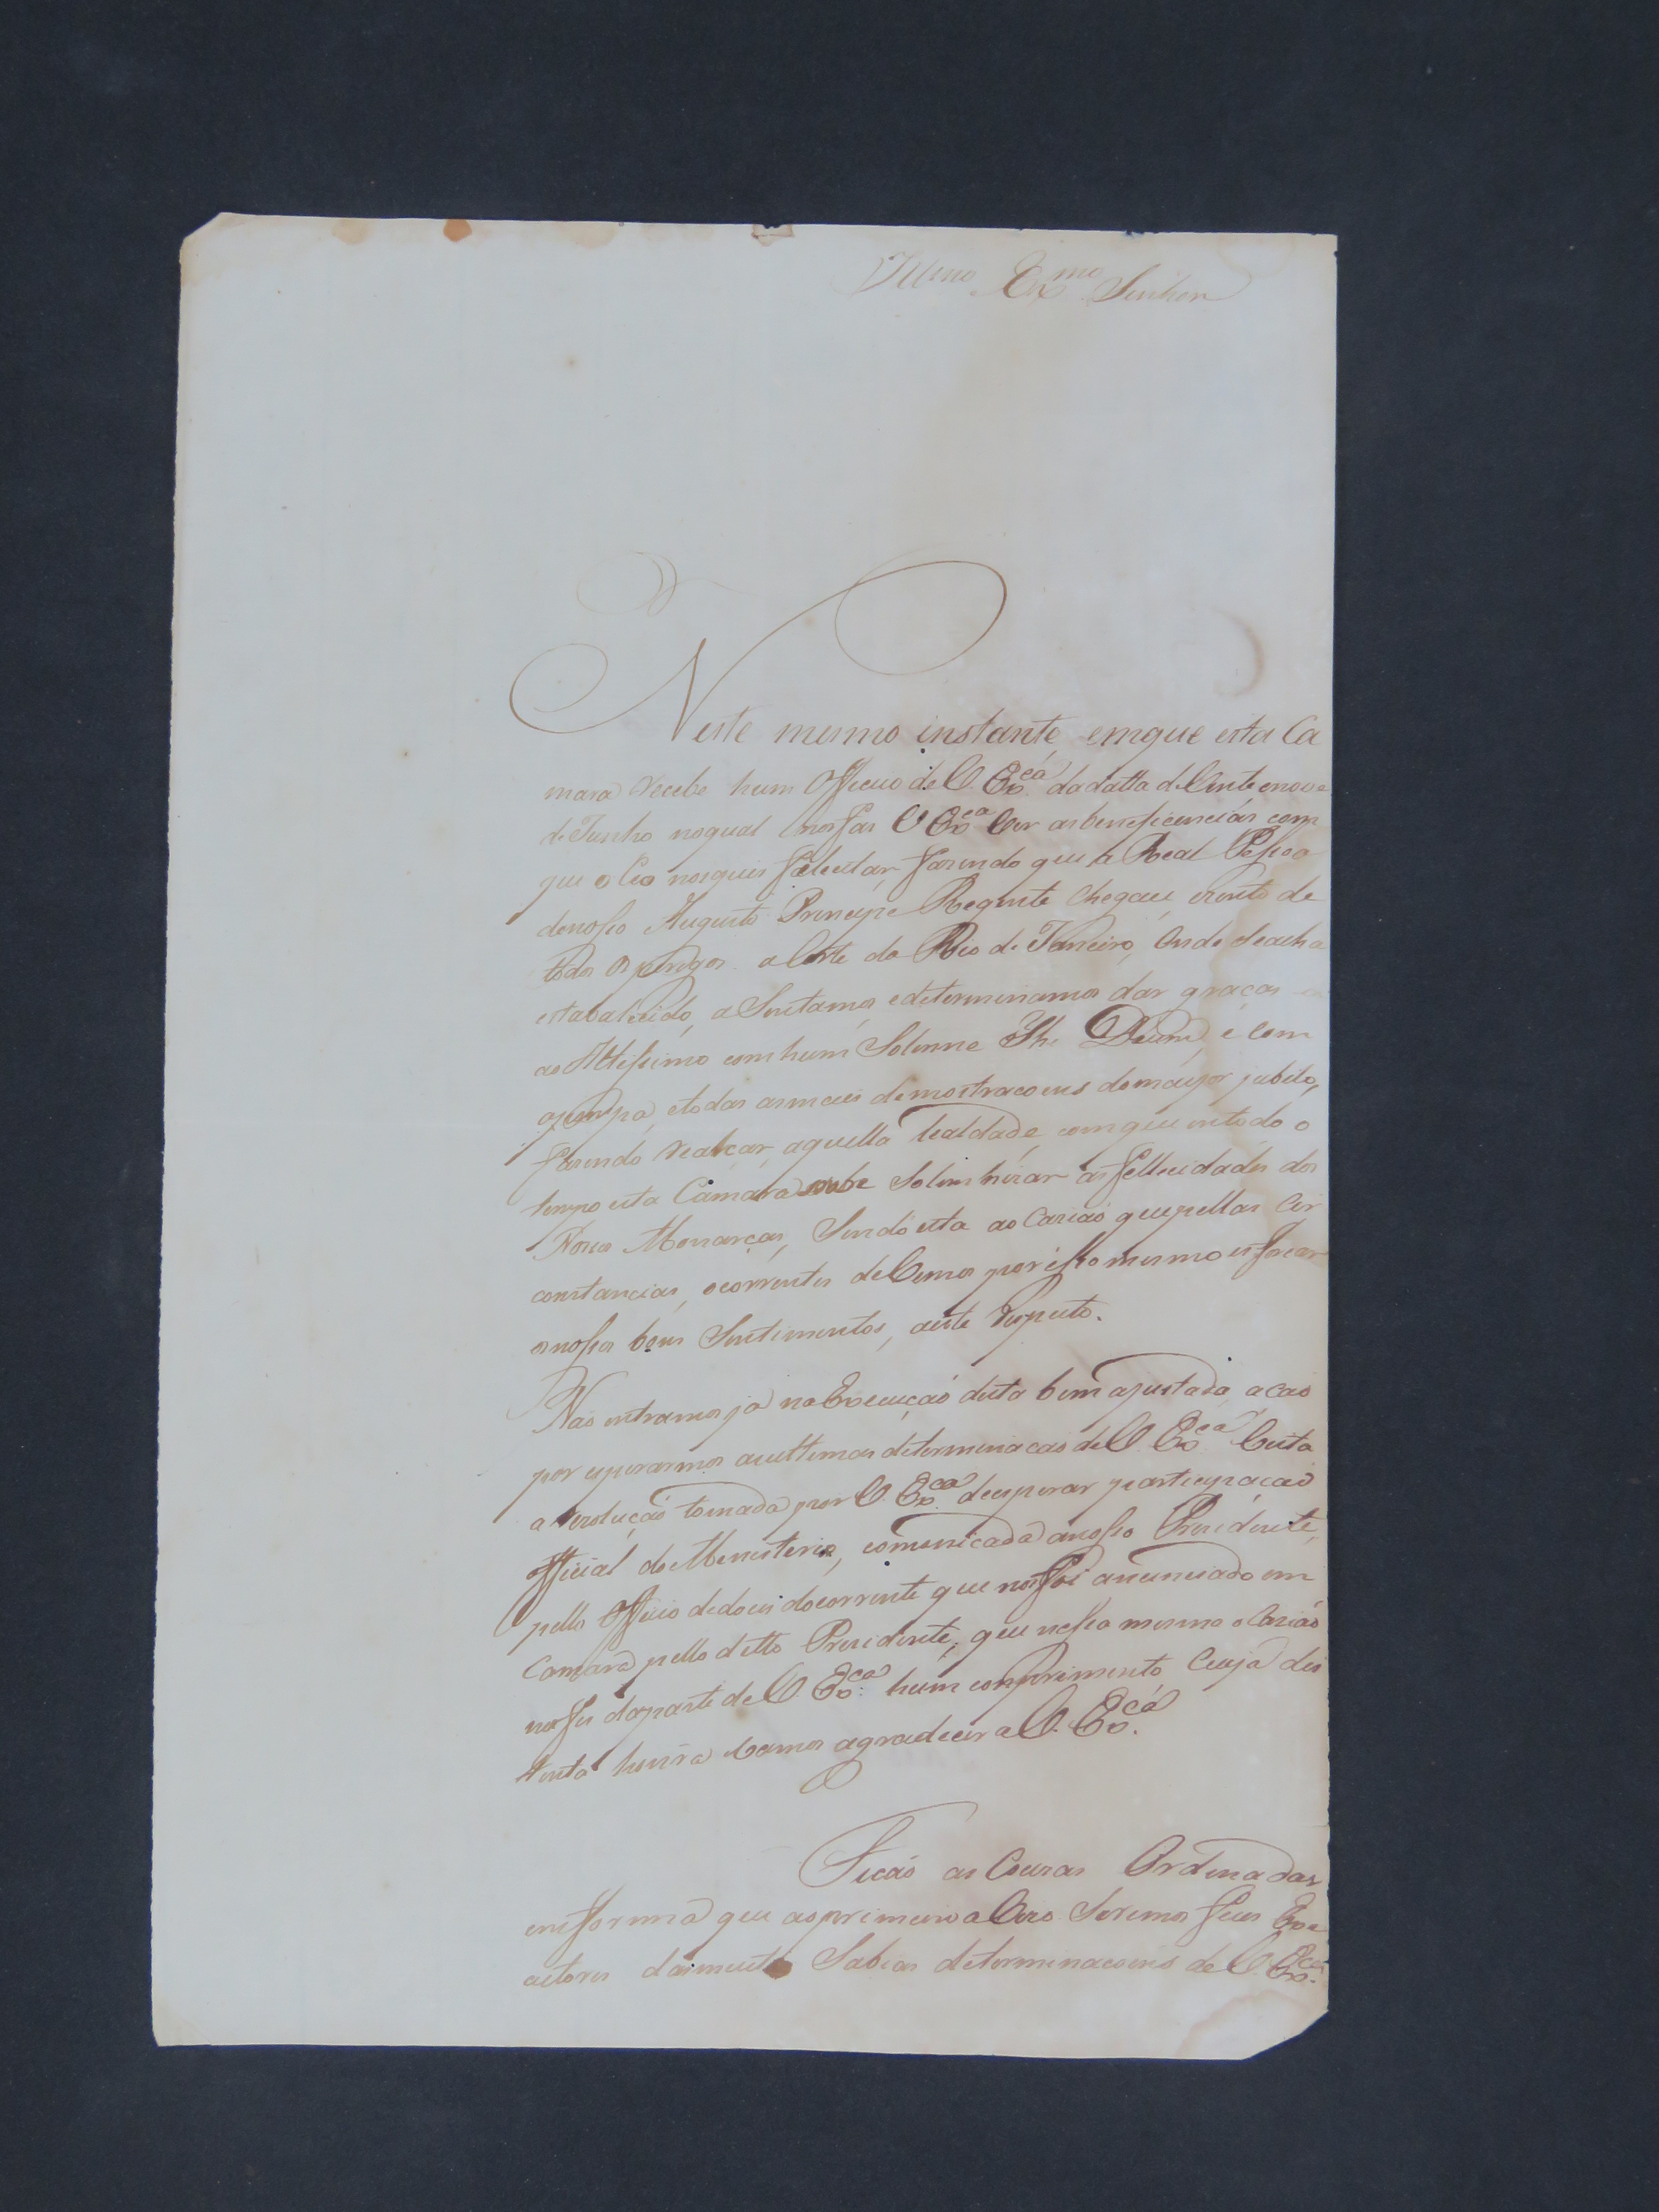 Illmo Exmo Senhor
Neste mesmo instante emque esta Ca
mara recebe hum Officio de V. Exca da datta de Vinte enove
de Junho noqual nosfas V Exca Ver as beneficencias com
que o Ceo nosquis felecitar, fasendo que a Real Pessoa
denosso Augusto Principe Regente chegace, izento de
todos os perigos a Corte do Rio de Janeiro, Onde seacha
estabalecido, a Sentamos edeterminamos dar graças
ao Altissimo com hum Solenne The Deum, e com
apompa, etodas asmais demostracoens domayor jubilo,
fasendo realcar, aquella lealdade comque entodo o
tempo esta Camara soube Solemnizar as fellecidades dos
Nosos Monarcas, Sendo esta ao Caziaó quepellas Cir
constancias, ocorrentes deVemos por isso mesmo esforcar
osnossos bons Sentimentos, aeste respeito.
Nao entramos ja na Execuçaó desta bem ajustada acao
por esperarmos asulttimas determinacao deV. Exca Vista
a rezoluçaó tomada por V. Exca deesperar participacaó
official do Menisterio, comonicada anosso Prezidente,
pello Officio dedois docorrente que nosfoi anunciado em
Camara pello ditto Prezidente, que nessa mesma oCaziaó
nosfes daparte de V. Exca hum comprimento Cuja des
tinta honra vamos agradecer a V. Exca.
Ficaó as Cousas Ordenadas
emforma que aoprimeiro aVizo Seremos fieis Exe
cutores dasmuito Sabias determinacoens de V. Exca.